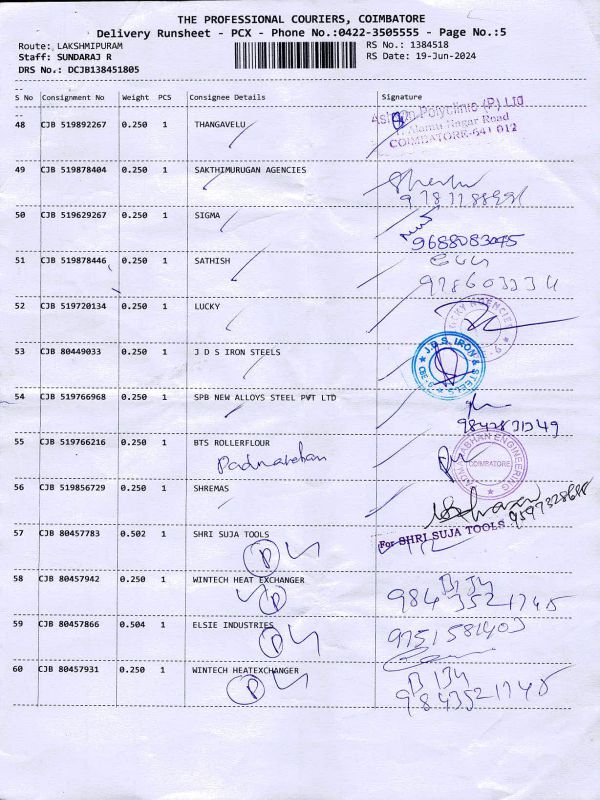 THE PROFESSIONAL COURIERS, COIMBATORE
Delivery Runsheet - PCX - Phone No.:0422-3505555 - Page No.:5
Route: LAKSHMIPURAM RS No.: 1384518
Staff: SUNDARAJ R RS Date: 19-Jun-2024
DRS No.: DCJB138451805
S No Consignment No Weight PCS Consignee Details Signature
48 CJB 519892267 0.250 1 THANGAVELU
Polyclinic (P) Ltd
Nagar Road
COIMBATORE-641 012
49 CJB 519878404 0.250 1 SAKTHIMURUGAN AGENCIES
50 CJB 519629267 0.250 1 SIGMA
9688083045
51 CJB 519878446 0.250 1 SATHISH
52 CJB 519720134 0.250 1 LUCKY
53 CJB 80449033 0.250 1 J D S IRON STEELS
J.D.S. IRON & STEELS
CBE-9
54 CJB 519766968 0.250 1 SPB NEW ALLOYS STEEL PVT LTD
55 CJB 519766216 0.250 1 BTS ROLLERFLOUR
ENGINEERING
COIMBATORE
56 CJB 519856729 0.250 1 SHREMAS
57 CJB 80457783 0.502 1 SHRI SUJA TOOLS
For SHRI SUJA TOOLS
P
58 CJB 80457942 0.250 1 WINTECH HEAT EXCHANGER
P
59 CJB 80457866 0.504 1 ELSIE INDUSTRIES
P
60 CJB 80457931 0.250 1 WINTECH HEATEXCHANGER
P